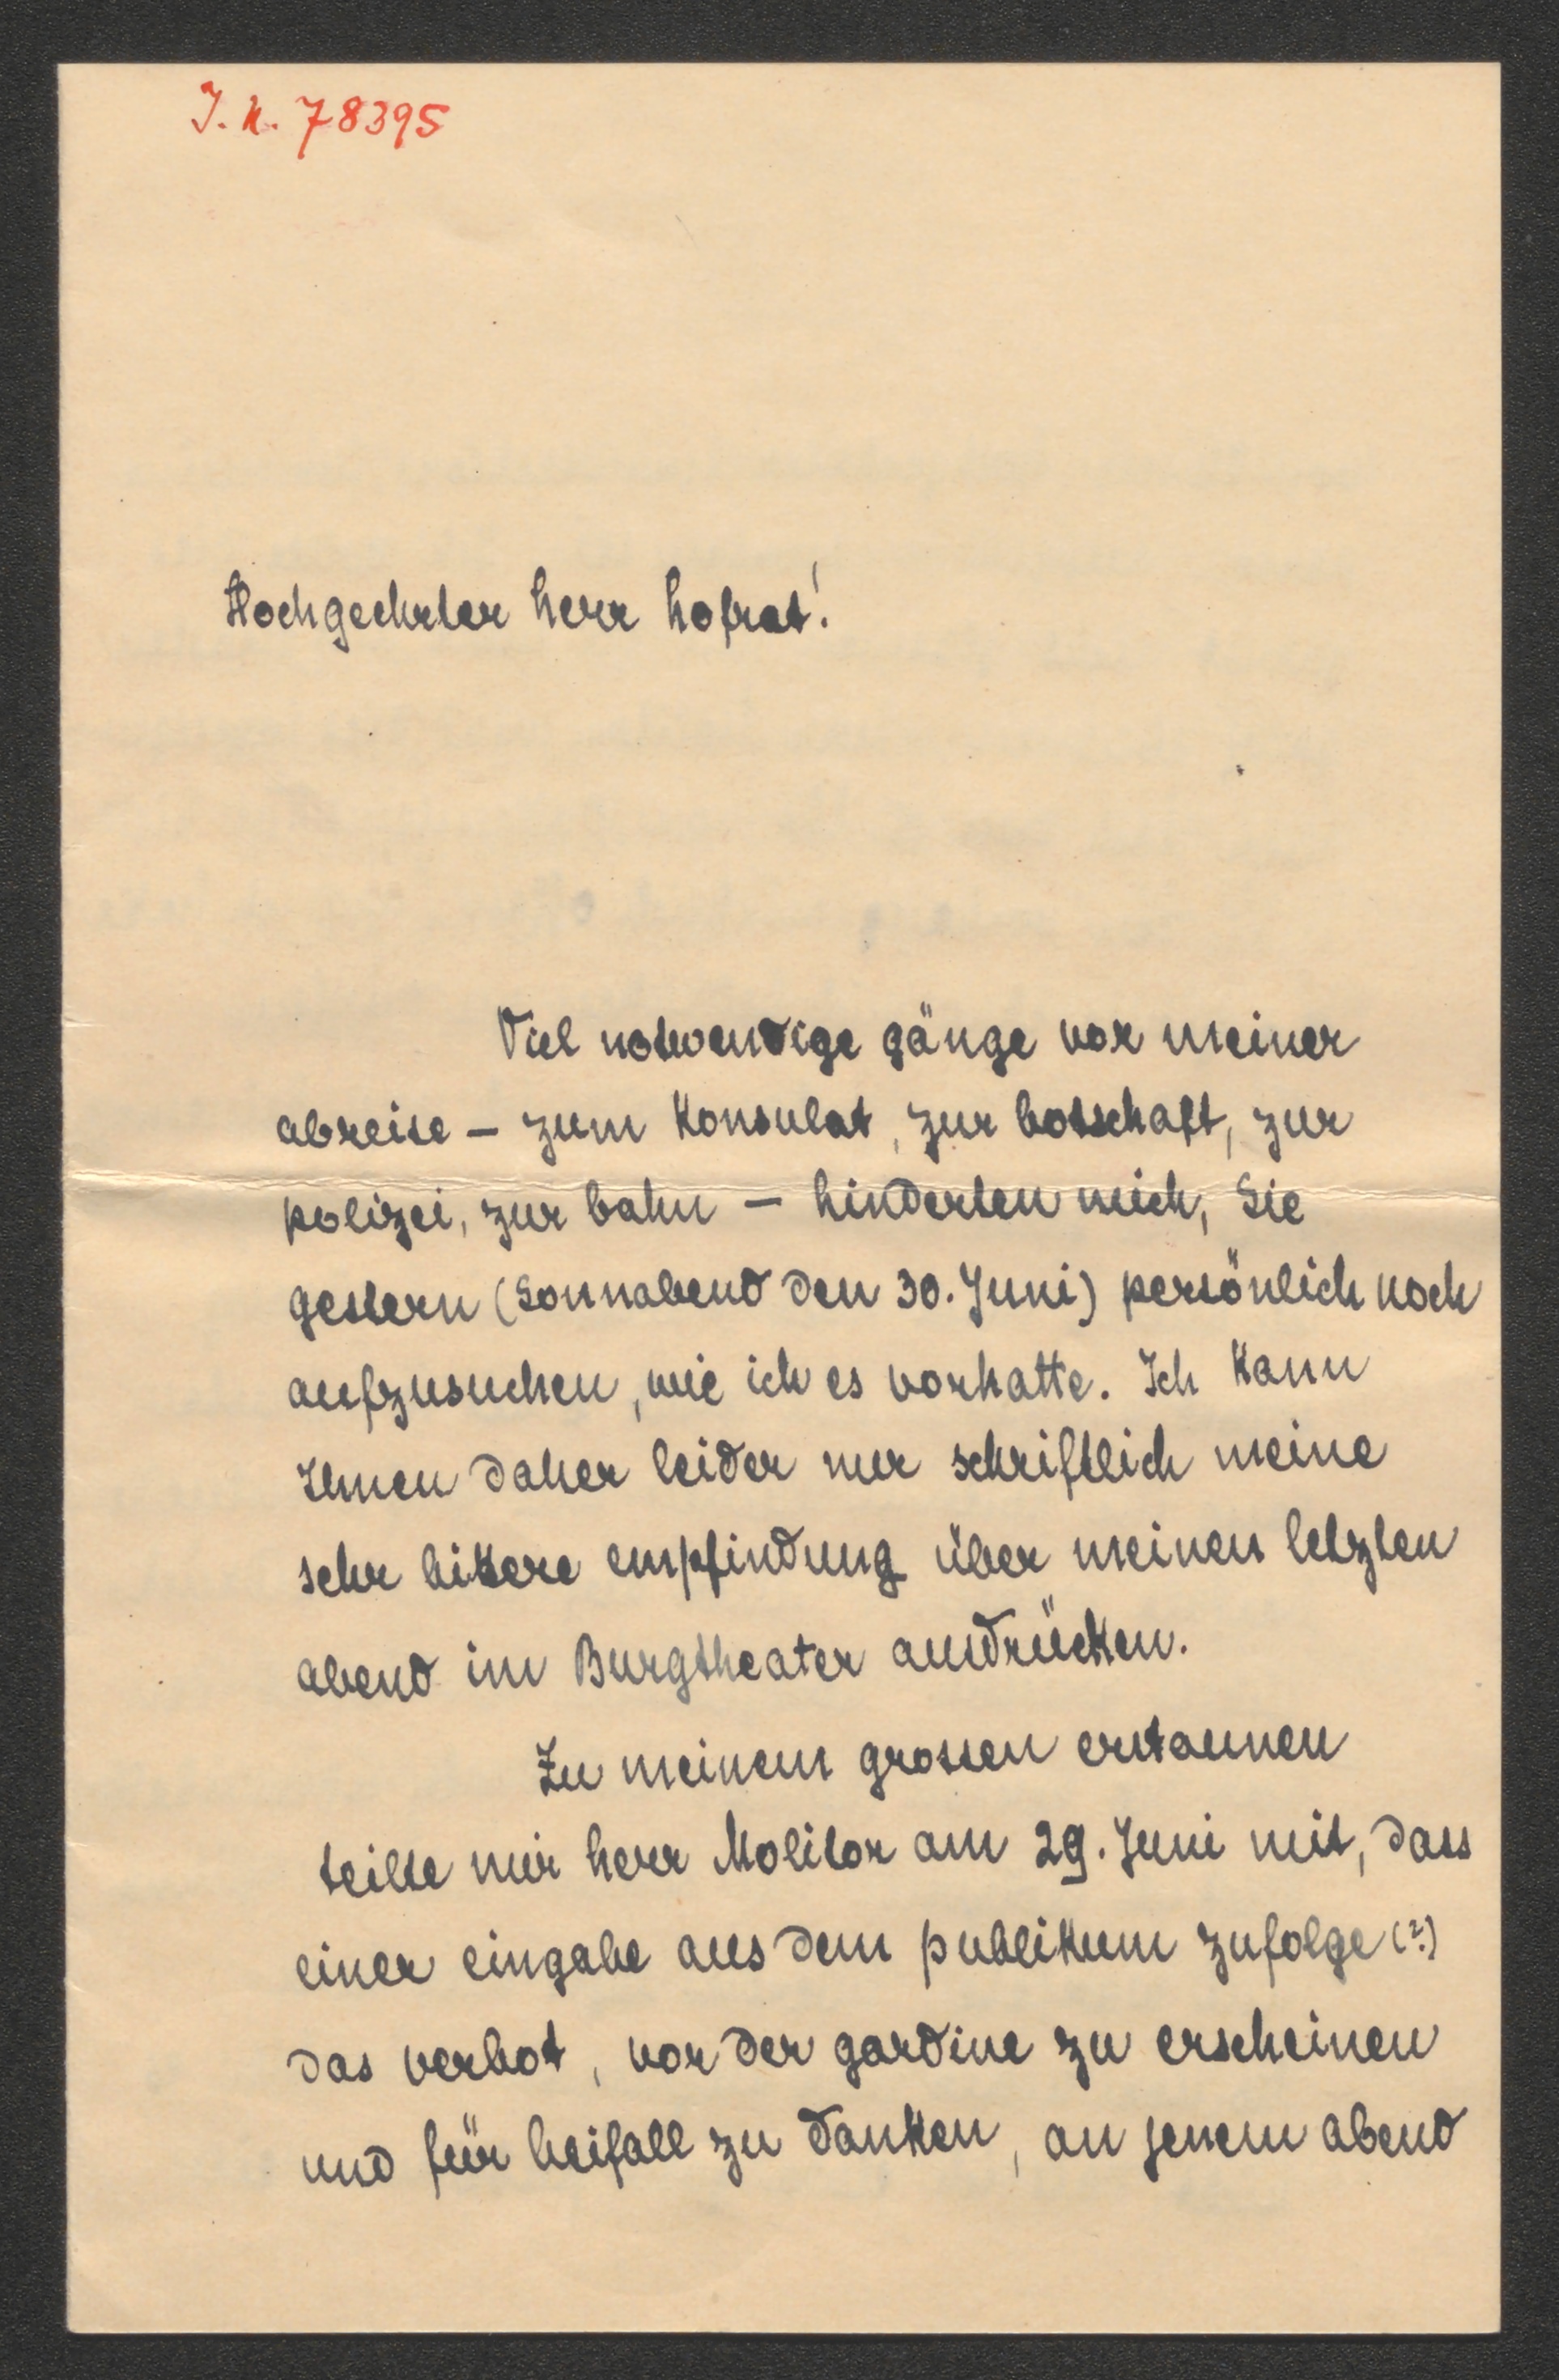 J.N. 78395
Hochgeehrter herr hofrat!
Viel notwendige gänge vor meiner
abreise – zum konsulat, zur botschaft, zur
polizei, zur bahn – hinderten mich, Sie
gestern (Sonnabend den 30. Juni) persönlich noch
aufzusuchen, wie ich es vorhatte. Ich kann
Ihnen daher leider nur schriftlich meine
sehr bittere empfindung über meinen letzten
abend im Burgtheater ausdrücken.
Zu meinem grossen erstaunen
teilte mir herr Molitor am 29. Juni mit, dass
einer eingabe aus dem publikum zufolge (?)
das verbot, vor der gardine zu erscheinen
und für beifall zu danken, an jenem abend